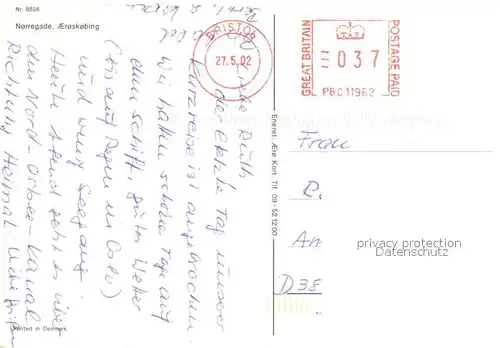 Nr. 8526
Nørregade, Ærøskøbing
Liebe Ruth
der letzte Tag unserer
Kurzreise ist angebrochen.
Wir hatten schöne Tage auf
dem Schiff, gutes Wetter
(bis auf Regen in Oslo)
und wenig Seegang.
Heute Abend geht es über
den Nord-Ostsee-Kanal
Richtung Heimat.
Printed in Denmark
BRISTOL
27.5.02
GREAT BRITAIN
037
PBC 11962
POSTAGE PAID
Eneret: Ærø Kort Tlf 09-52 12 00
Frau
R.
Am
D 38
privacy protection
Datenschutz